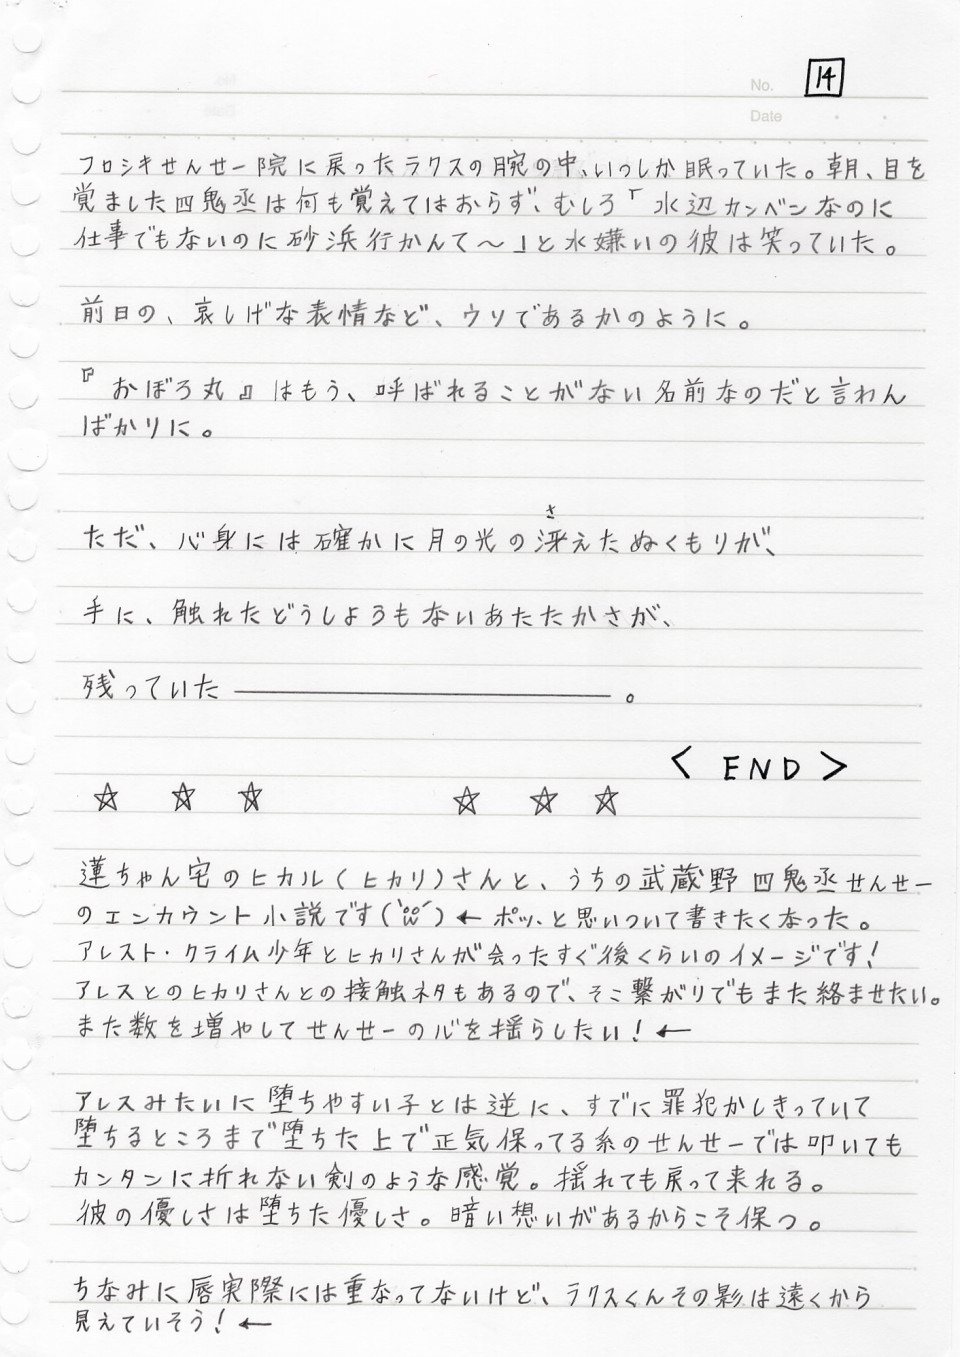 No. 14
Date
フロシキせんせー院に戻ったラクスの腕の中、いつしか眠っていた。朝、目を
覚ました四鬼丞は何も覚えてはおらず、むしろ「水辺カンベンなのに
仕事でもないのに砂浜行かんて〜」と水嫌いの彼は笑っていた。
前日の、哀しげな表情など、ウソであるかのように。
『おぼろ丸』はもう、呼ばれることがない名前なのだと言わん
ばかりに。
ただ、心身には確かに月の光の冴えたぬくもりが、
さ
手に、触れたどうしようもないあたたかさが、
残っていた―――――――。
<END>
☆ ☆ ☆ ☆ ☆ ☆
蓮ちゃん宅のヒカル(ヒカリ)さんと、うちの武蔵野四鬼丞せんせー
のエンカウント小説です ← ポッと思いついて書きたくなった。
アレスト・クライム少年とヒカリさんが会ったすぐ後くらいのイメージです!
アレスとのヒカリさんとの接触ネタもあるので、そこ繋がりでもまた絡ませたい。
また数を増やしてせんせーの心を揺らしたい! ←
アレスみたいに堕ちやすい子とは逆に、すでに罪犯かしきっていて
堕ちるところまで堕ちた上で正気保ってる系のせんせーでは叩いても
カンタンに折れない剣のような感覚。揺れても戻って来れる。
彼の優しさは堕ちた優しさ。暗い想いがあるからこそ保つ。
ちなみに唇実際には重なってないけど、ラクスくんその影は遠くから
見えていそう! ←